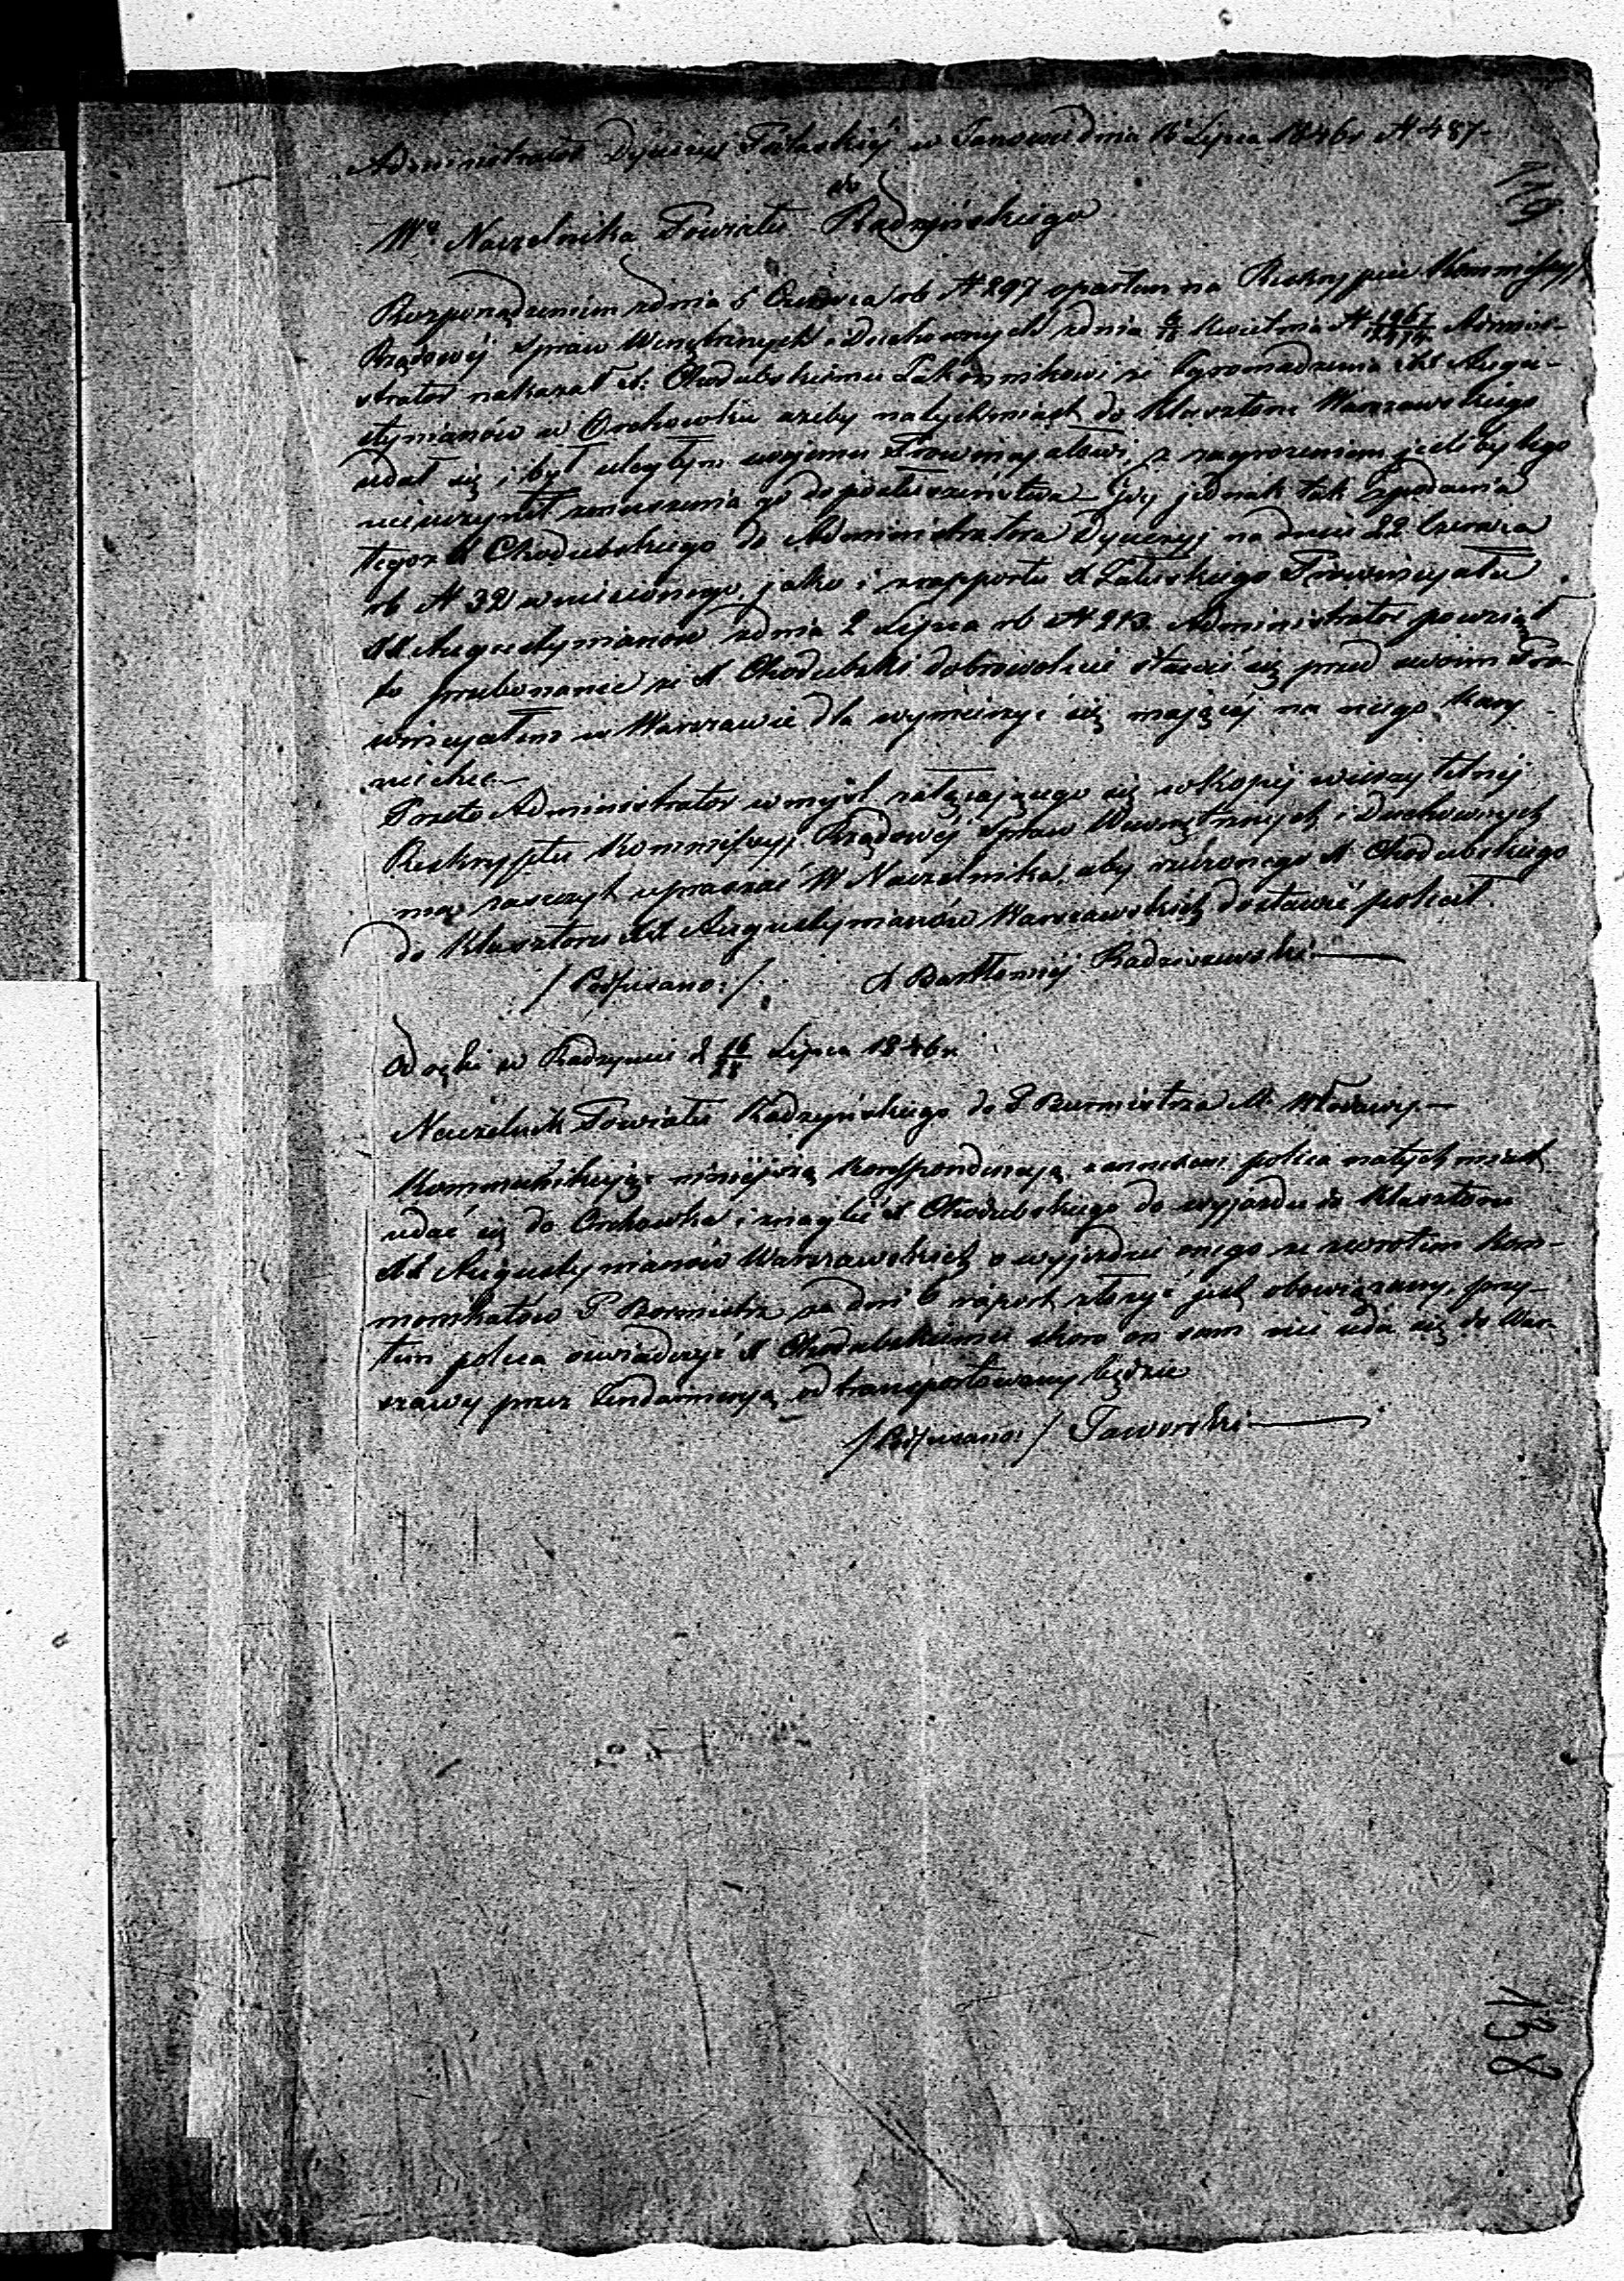 Administrator Dyecezyi Podlaskiéj w Janowie dnia 15 Lipca 1846 r N 487.
do
Wo Naczelnika Powiatu Radzyńskiego
Rozporządzeniem zdnia 5 Czerwca rb N 297 opartem na Reskrypcie Kommissyi
Rządowéj Spraw Wewnętrznych i Duchownych zdnia 6/18 Kwietnia N Admini-
strator nakazał X. Chodubskiemu Zakonnikowi ze Zgromadzenia XX Augu-
stynianów w Orchówku ażeby natychmiast do Klasztoru Warszawskiego
udał się i był uległym swojemu Prowincyałowi, z zagrożeniem jeśliby tego
nieuczynił zmuszenia go do posłuszeństwa – gdy jednak tak z podania
tegoż X Chodubskiego do Administratora Dyecezyj na dniu 22 Czerwca
rb N 32 wniesionego, jako i z rapportu X Załuskiego Prowincyała
XX Augustynianów zdnia 2 Lipca rb N 213. Administrator powziął
to przekonanie że X Chodubski dobrowolnie stawić się przed swoim Pro-
wincyałem w Warszawie dla wymierzyć się mającéj na niego kary
niechce. –
Przeto Administrator w myśl załączającego się w kopij wierzytelnéj
Reskryptu Kommissyj Rządowéj Spraw Wewnętrznych i Duchownych
ma zaszczyt upraszać W Naczelnika, aby rzeczonego X Chodubskiego
do Klasztoru XX Augustynianów Warszawskich dostawić polecił.
/ Podpisano: / X Bartłomiéj Radziszewski
w Radzyniu d 16/28 Lipca 1846 r.
Naczelnik Powiatu Radzyńskiego do P Burmistrza M. Włodawy. –
Kommunikując niniejszą korrespondencyą z annexami poleca natychmiast
udać się do Orchówka i znaglić X Chodubskiego do wyjazdu do Klasztoru
XX Augustynianów Warszawskich o wyjeździe onego ze zwrotem kom-
monikatów P Bormistrz za dni 6 raport złożyć jest obowiązany, przy-
tem poleca oświadczyć X Chodubskiemu skoro on sam nie uda się do War-
szawy przez Żendarmeryą odtransportowany będzie
/ Podpisano: / Jaworski
138